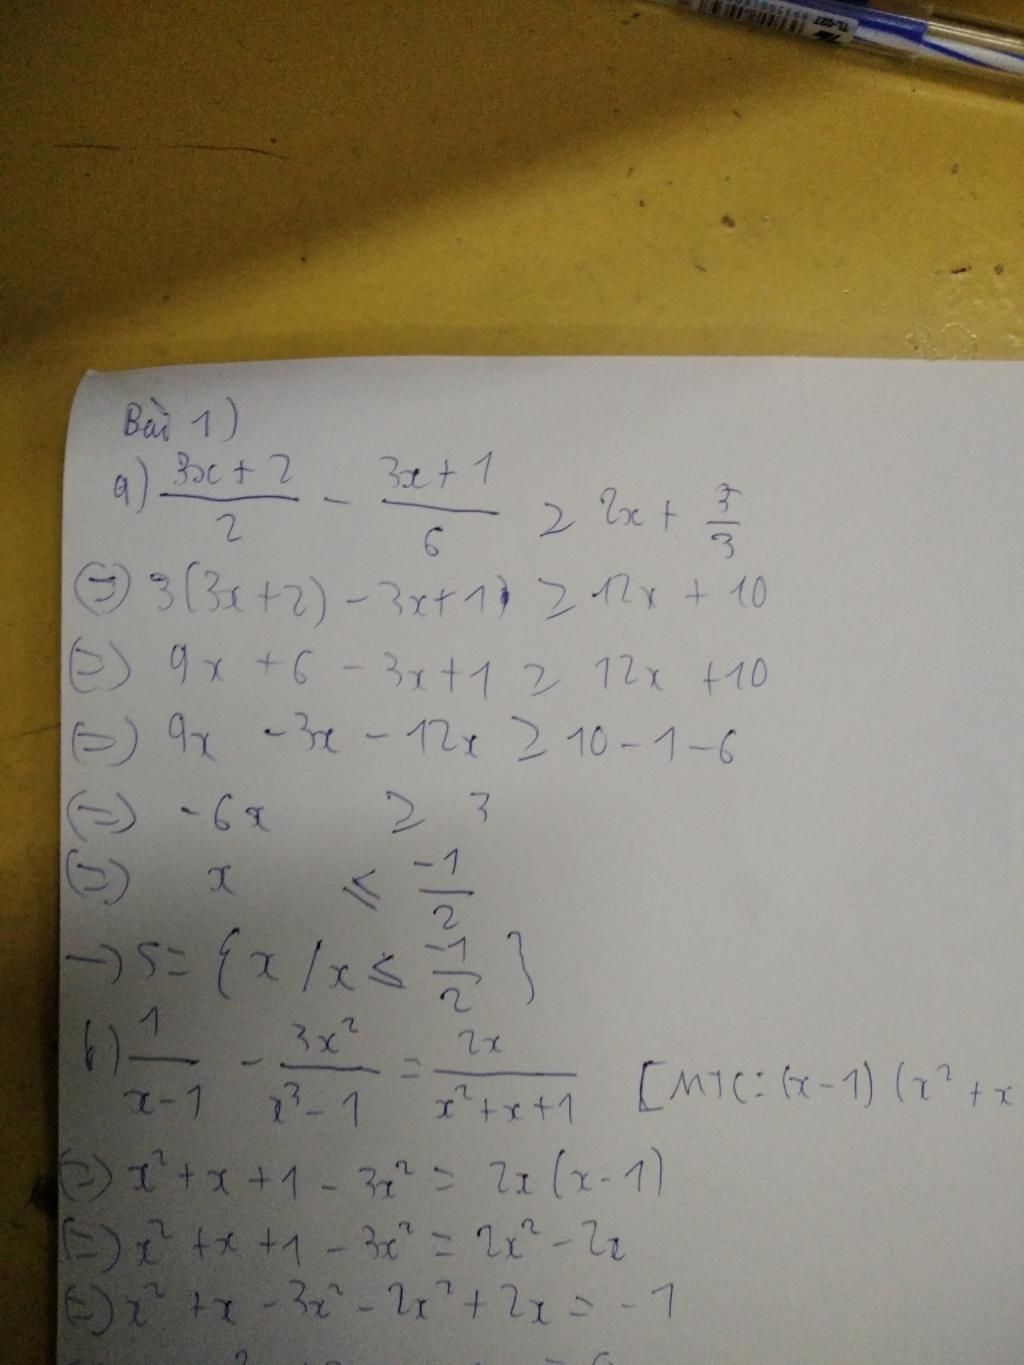 TL-027
Bài 1)
a) (3x+2)/2 - (3x+1)/6 ≥ 2x + 5/3
(=) 3(3x+2) - 3x+1) ≥ 12x + 10
(=) 9x + 6 - 3x+1 ≥ 12x +10
(=) 9x - 3x - 12x ≥ 10 - 1 - 6
(=) -6x ≥ 3
(=) x ≤ -1/2
→ S = {x / x ≤ -1/2}
b) 1/(x-1) - 3x²/(x³-1) = 2x/(x²+x+1) [MTC: (x-1)(x²+x
(=) x²+x+1 - 3x² = 2x(x-1)
(=) x² +x +1 - 3x² = 2x² - 2x
(=) x² +x - 3x² - 2x² + 2x = -1